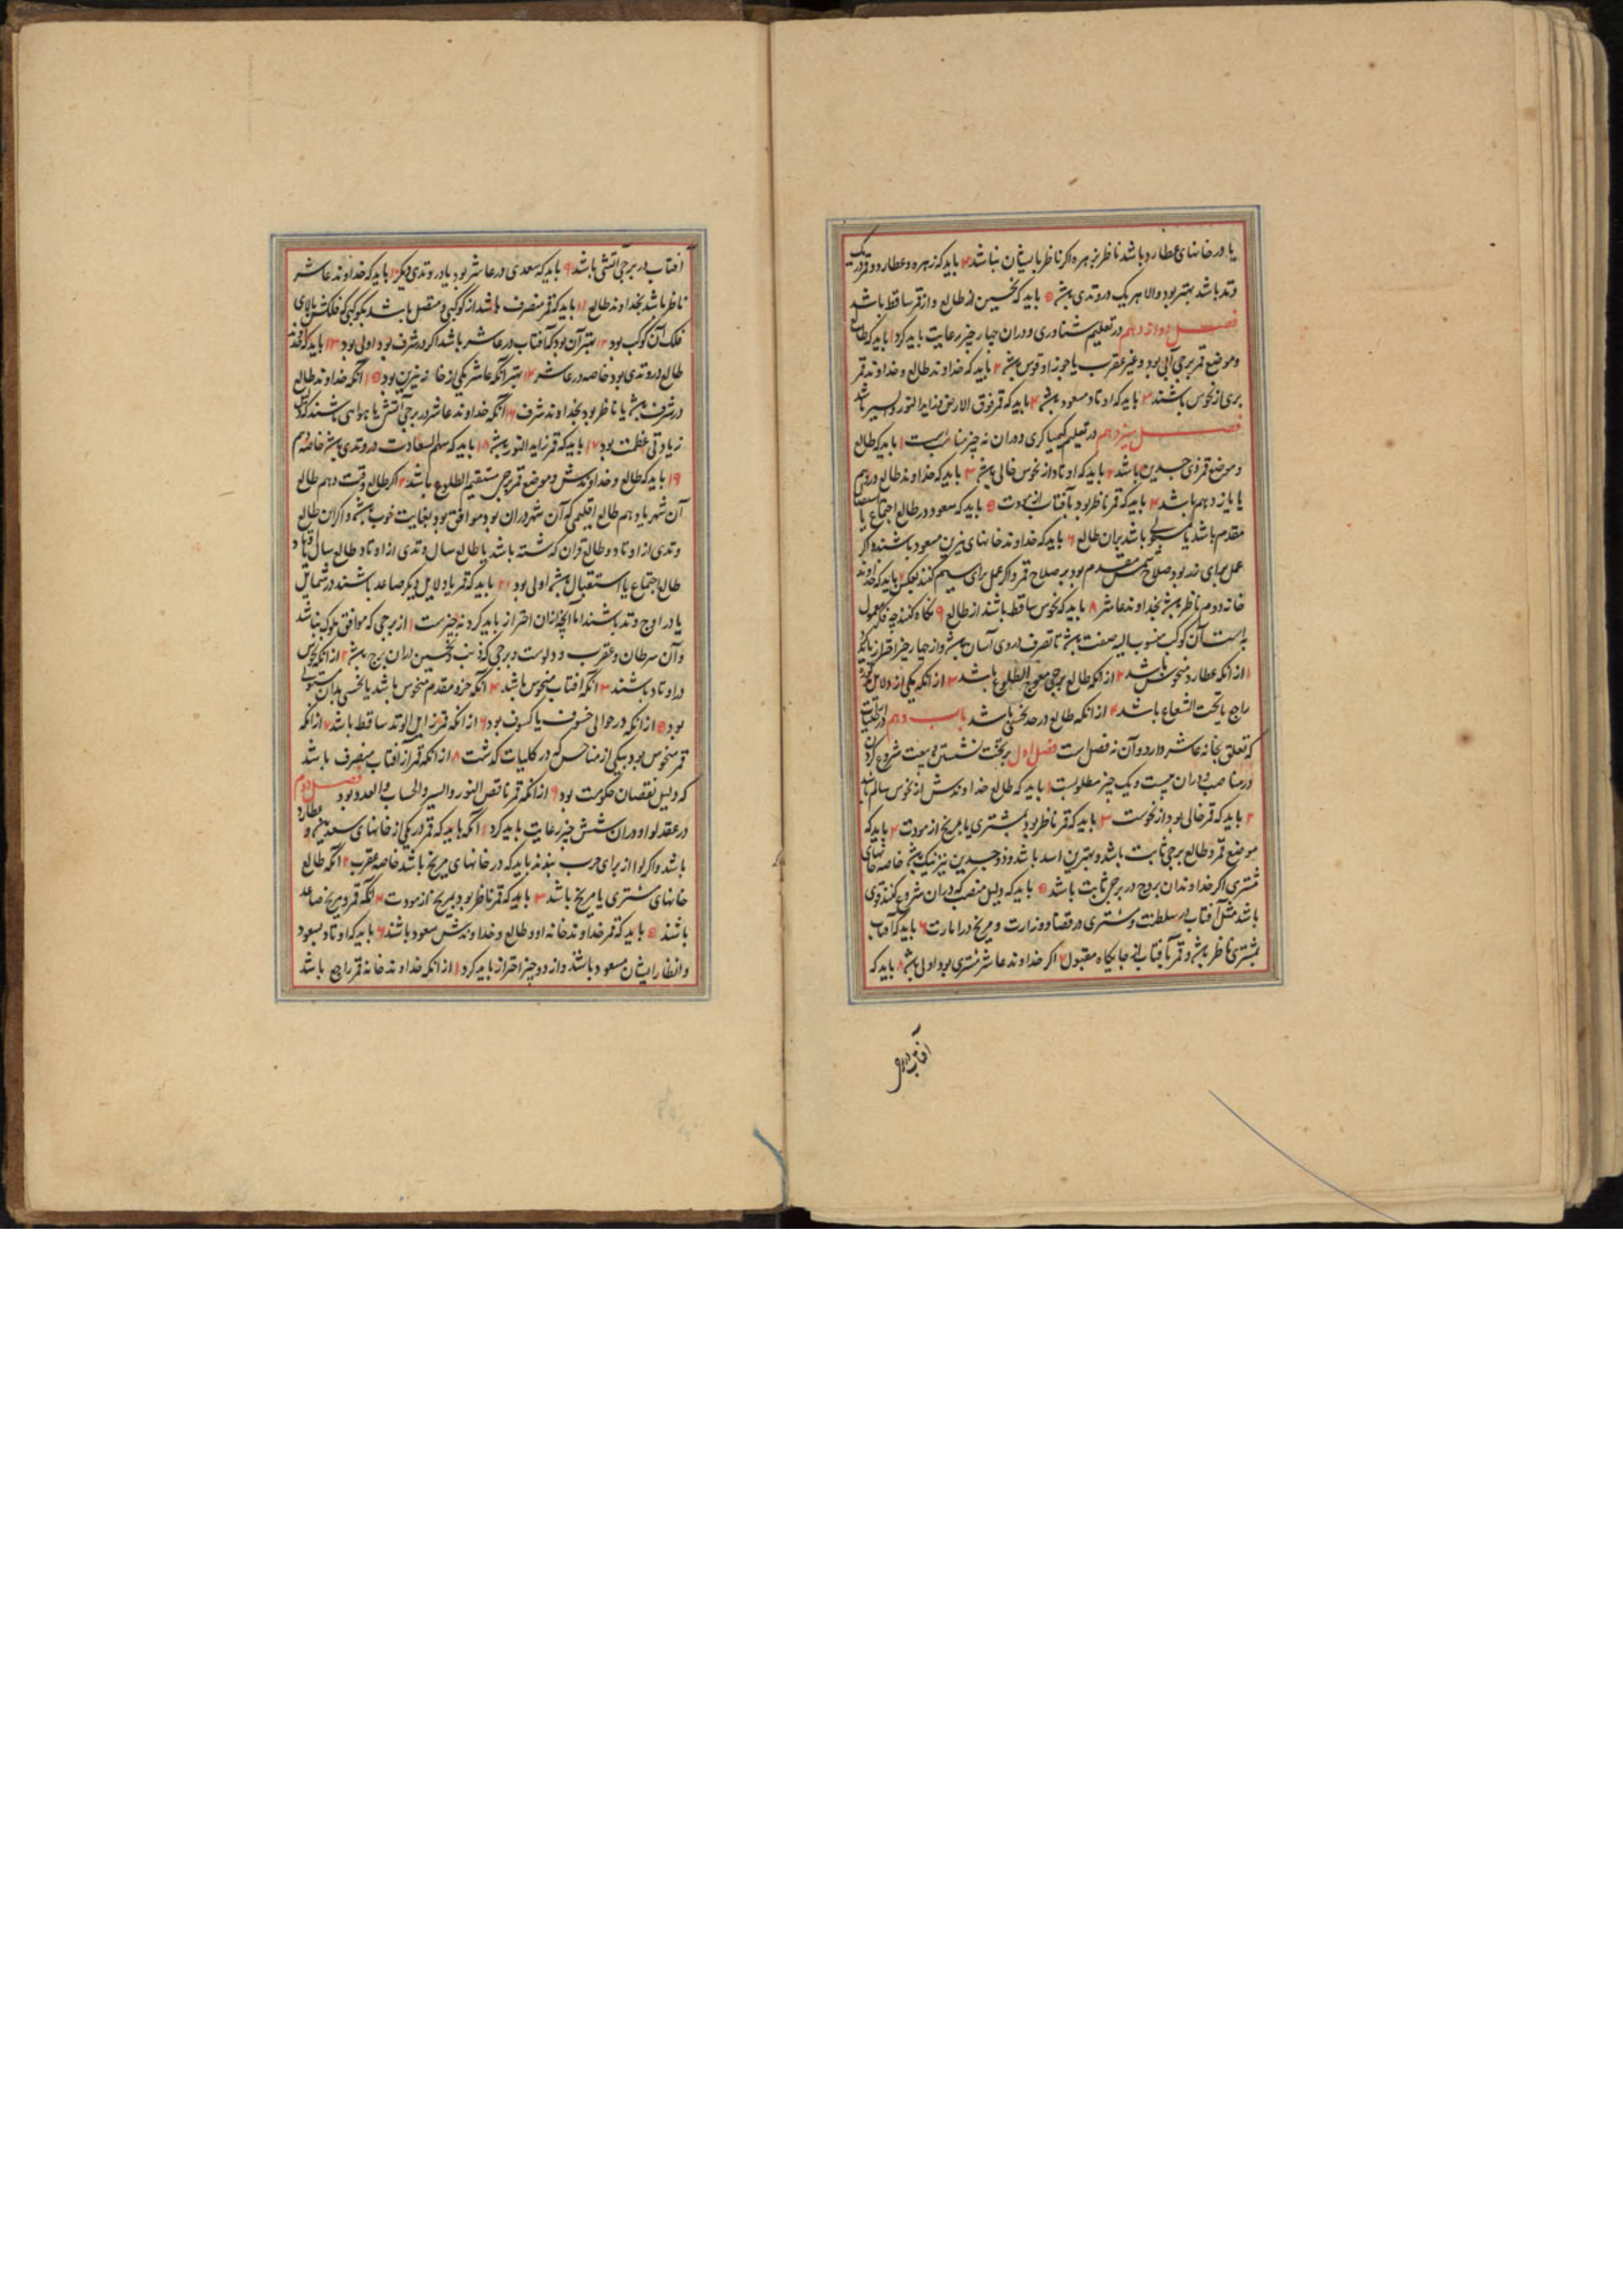 یا در خانهای عطارد باشد ناظر بزهره اکر ناظر بایشان نباشد ۴ باید که زهره و عطارد و قمر در یک
وتد باشد بهتر بود والا هر یک در وتدی باشد ۵ باید که نحسین از طالع و از قمر ساقط باشد
فصل دوازدهم در تعلیم شناوری و دران چهار چیز رعایت باید کرد ۱ باید که طالع
و موضع قمر برجی آبی بود و غیر عقرب یا جوزا و قوس باشد ۲ باید که خداوند طالع و خداوند قمر
بری از نحوس باشند ۳ باید که اوتاد مسعود باشد ۴ باید که قمر فوق الارض و زاید النور و السیر باشد
فصل سیزدهم در تعلیم کیمیاکری و دران نه چیز مناسبست ۱ باید که طالع
و موضع قمر ذی جسدین باشد ۲ باید که اوتاد از نحوس خالی باشد ۳ باید که خداوند طالع در دهم
یا یازدهم باشد ۴ باید که قمر ناظر بود بآفتاب از مودت ۵ باید که سعود در طالع اجتماع یا استقبال
مقدم باشد یا مستولی باشد بران طالع ۶ باید که خداوند خانهای نیرین مسعود باشند و اکر
عمل برای زر بود صلاح شمس مقدم بود بر صلاح قمر و اکر عمل برای سیم کنند بعکس ۷ باید که خداوند
خانه دوم ناظر باشد بخداوند عاشر ۸ باید که نحوس ساقط باشند از طالع ۹ نکاه کنند چه فلک معمول
است آن کوکب منسوب الیه صفت باشد تا تصرف در وی آسان باشد و از چهار چیز احتراز باید
۱ از انکه عطارد منحوس باشد ۲ از انکه طالع برجی معوج الطلوع باشد ۳ از انکه یکی از دلایل
راجع یا تحت الشعاع باشد ۴ از انکه طالع در حد نحسی باشد باب دهم در اختیارات
که تعلق بخانه عاشر دارد و آن نه فصل است فصل اول بر تخت نشستن و بیعت و شروع کردن
در مناصب و دران بیست و یک چیز مطلوبست ۱ باید که طالع خداوندش از نحوس سالم باشد
۲ باید که قمر خالی بود از نحوست ۳ باید که قمر ناظر بود بمشتری یا بمریخ از مودت ۴ باید که
موضع قمر و طالع برجی ثابت باشد و بهترین اسد باشد و ذو جسدین نیز نیک باشد خاصه خانهای
مشتری اکر خداوندان بروج در برجی ثابت باشد ۵ باید که دلیل منصب که دران شروع کنند قوی
باشد مثل آفتاب در سلطنت و مشتری در قضا و وزارت و مریخ در امارت ۶ باید که آفتاب
بمشتری ناظر باشد و قمر بآفتاب از جایکاه مقبول ۷ اکر خداوند عاشر مشتری بود اولی باشد ۸ باید که
آفتاب در برج
آفتاب در برجی آتشی باشد ۹ باید که سعدی در عاشر بود یا در وتدی دیکر ۱۰ باید که خداوند عاشر
ناظر باشد بخداوند طالع ۱۱ باید که قمر منصرف باشد از کوکبی و متصل باشد بکوکبی که فلکش بالای
فلک آن کوکب بود ۱۲ بهتر آن بود که آفتاب در عاشر باشد اکر در شرف بود اولی بود ۱۳ باید که خداوند
طالع در وتدی بود خاصه در عاشر ۱۴ بهتر انکه عاشر یکی از خانه نیرین بود ۱۵ انکه خداوند طالع
در شرف باشد یا ناظر بود بخداوند شرف ۱۶ انکه خداوند عاشر در برجی آتشی یا هوایی باشند که دلیل
زیادتی عظمت بود ۱۷ باید که قمر زاید النور باشد ۱۸ باید که سهم السعادت در وتدی باشد خاصه دهم
۱۹ باید که طالع و خداوندش و موضع قمر برجی مستقیم الطلوع باشد ۲۰ اکر طالع وقت دهم طالع
آن شهر یا دهم طالع اقلیمی که آن شهر دران بود موافق بود بغایت خوب باشد و اکر آن طالع
وتدی از اوتاد و طالع قران که شته باشد یا طالع سال وتدی از اوتاد طالع سال یا اوتاد
طالع اجتماع یا استقبال باشد اولی بود ۲۱ باید که قمر یا دلایل دیکر صاعد باشند در شمایل
یا در اوج و تد باشند اما آنچه ازان احتراز باید کرد نه چیزست ۱ از برجی که موافق ملوک نباشد
و آن سرطان و عقرب و دلوست و برجی که ذنب و نحسین دران برج باشد ۲ از انکه نحوس
در اوتاد باشند ۳ انکه آفتاب منحوس باشد ۴ انکه جزو مقدم منحوس باشد یا نحسی بدان مستولی
بود ۵ از انکه در حوالی خسوف یا کسوف بود ۶ از انکه قمر زایل الوتد ساقط باشد ۷ از انکه
قمر منحوس بود بیکی از مناحس که در کلیات کذشت ۸ از انکه قمر از آفتاب منصرف باشد
که دلیل نقصان حکومت بود ۹ از انکه قمر ناقص النور و السیر و الحساب و العدد بود فصل دوم
در عقد لوا و دران شش چیز رعایت باید کرد ۱ انکه باید که قمر در یکی از خانهای سعدین و عطارد
باشد و اکر لوا از برای حرب بندند باید که در خانهای مریخ باشد خاصه عقرب ۲ انکه طالع
خانهای مشتری یا مریخ باشد ۳ باید که قمر ناظر بود بمریخ از مودت ۴ انکه قمر و مریخ صاعد
باشند ۵ باید که قمر خداوند خانه او و طالع و خداوندش مسعود باشند ۶ باید که اوتاد بسعود
و انظار ایشان مسعود باشند و از دو چیز احتراز باید کرد ۱ از انکه خداوند خانه قمر راجع باشد